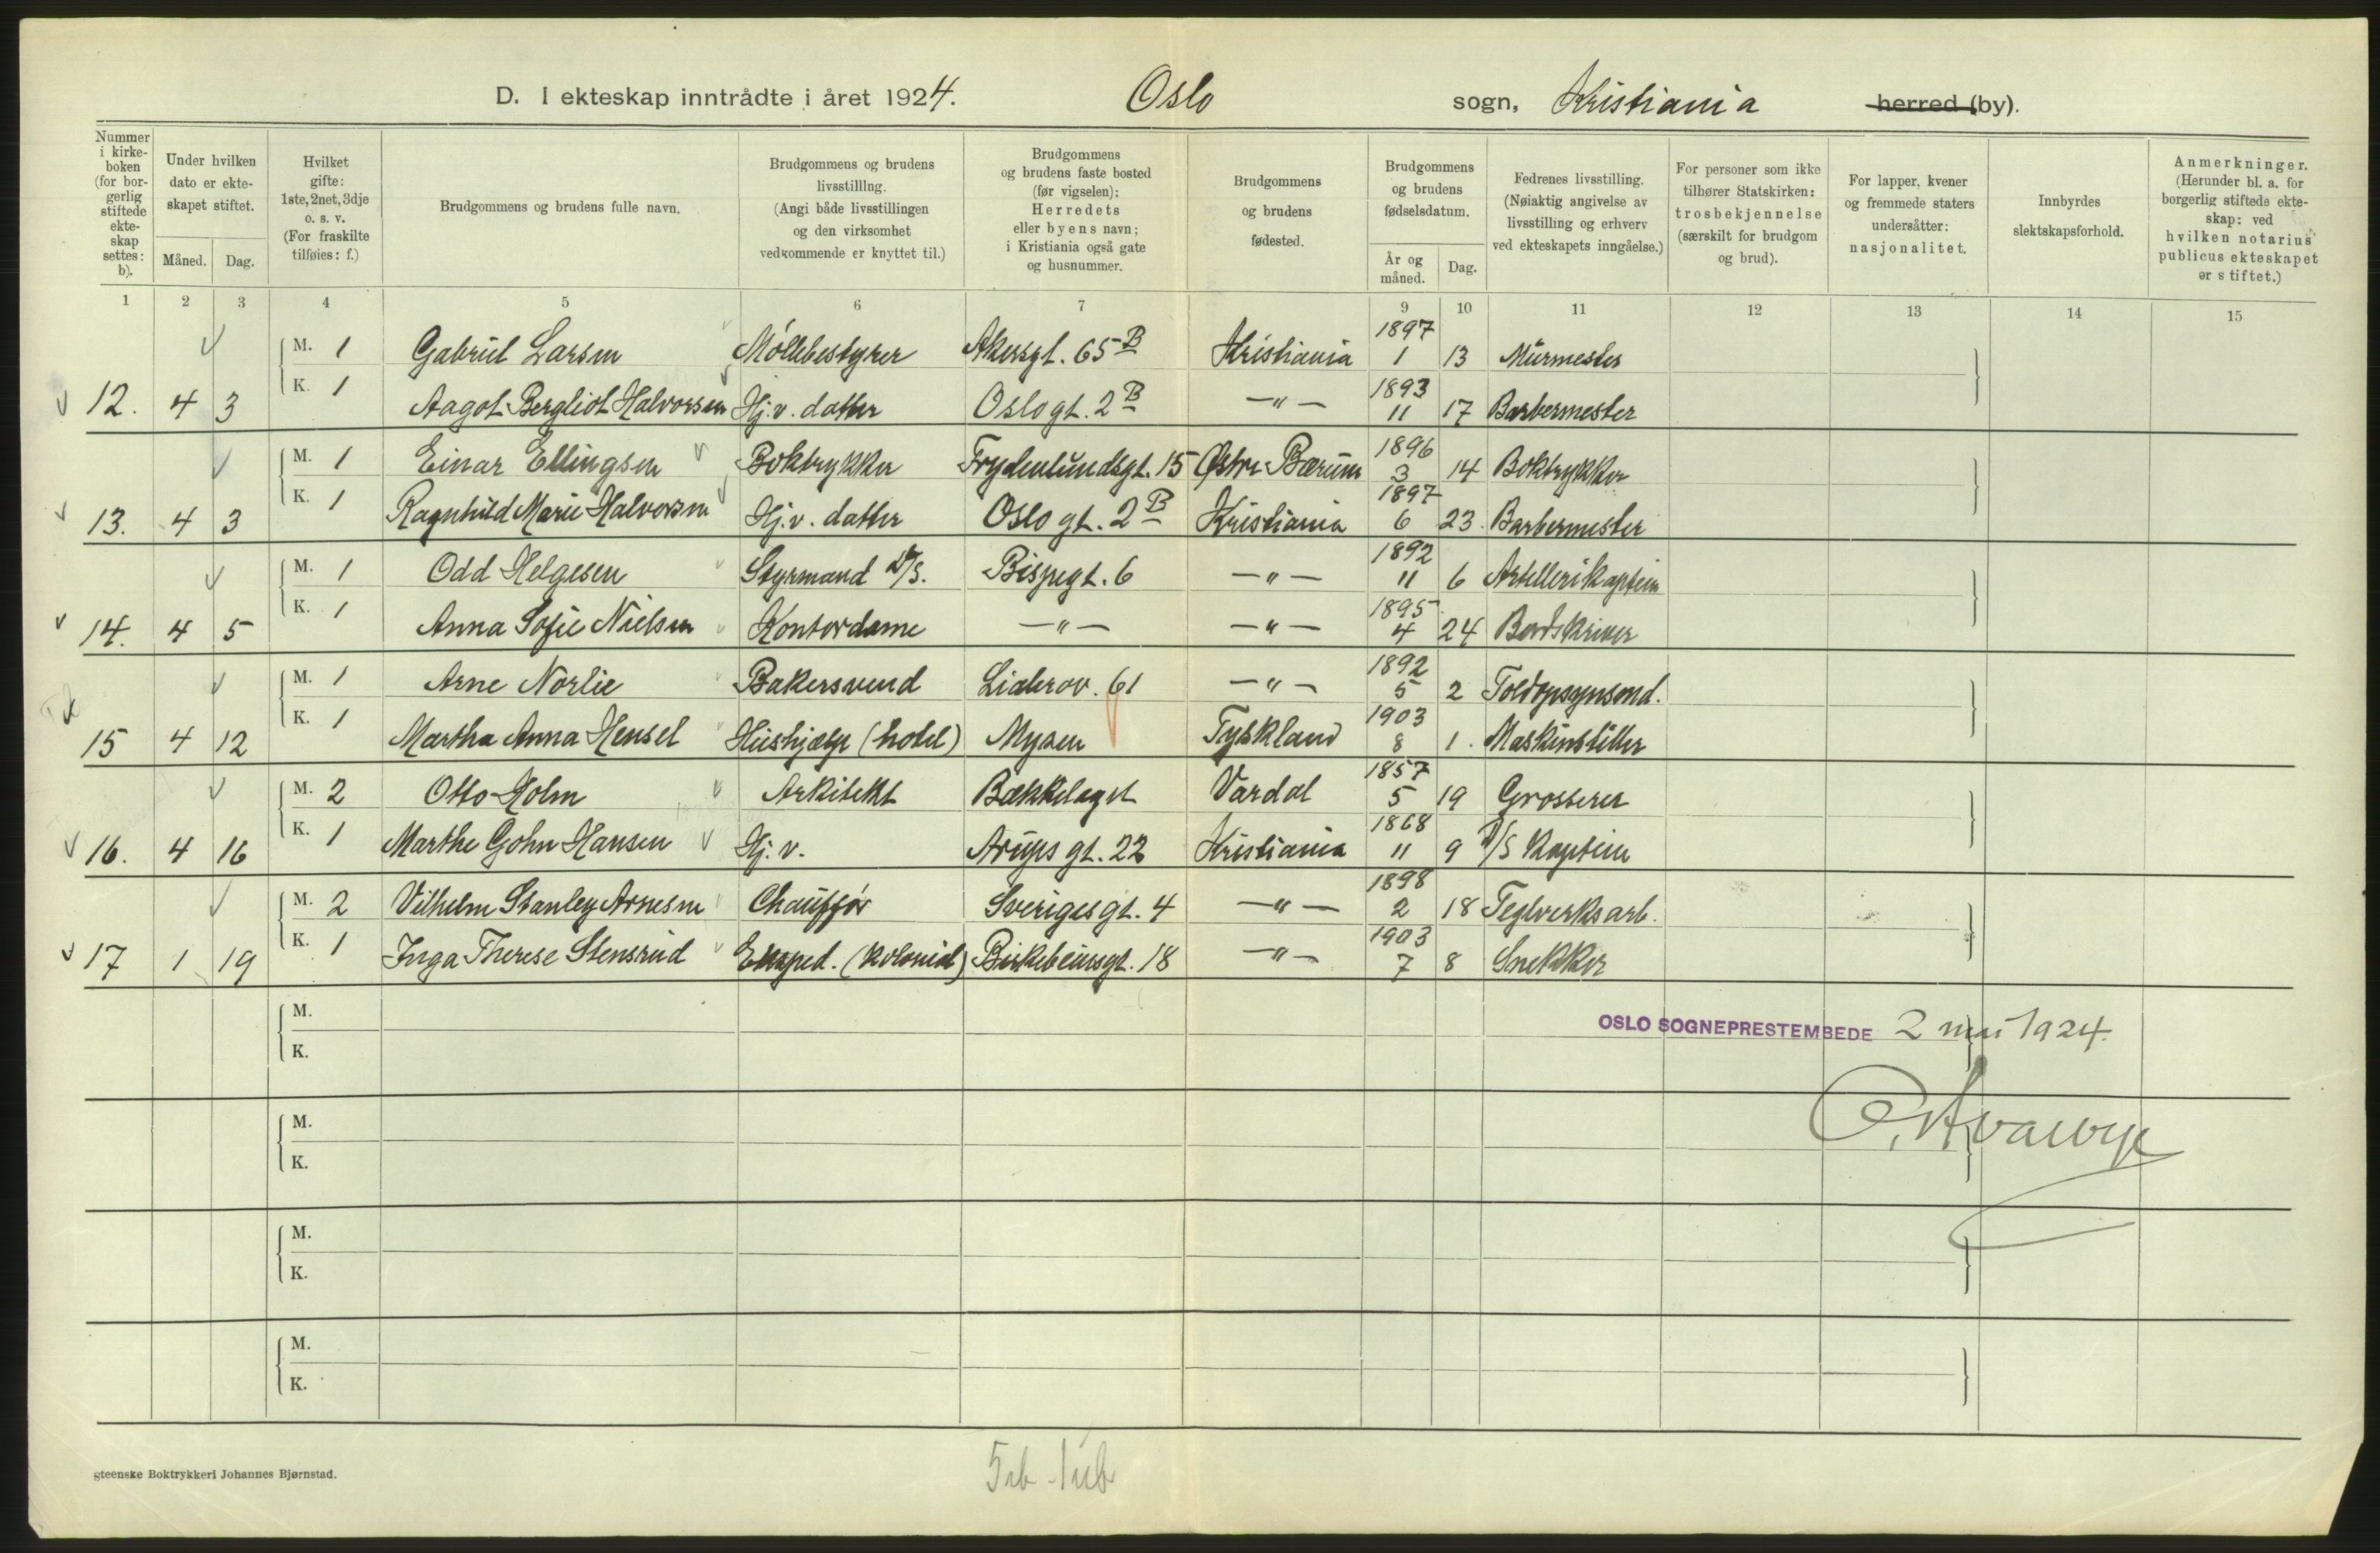 D. I ekteskap inntrådte i året 1924. Oslo sogn, Kristiania herred (by).
Nummer i kirke-boken (for bor-gerlig stiftede ekte-skap settes: b).
Under hvilken dato er ekte-skapet stiftet.
Måned. Dag.
Hvilket gifte: 1ste, 2net, 3dje o. s. v. (For fraskilte tilføies: f.)
Brudgommens og brudens fulle navn.
Brudgommens og brudens livsstilling. (Angi både livsstillingen og den virksomhet vedkommende er knyttet til.)
Brudgommens og brudens faste bosted (før vigselen): Herredets eller byens navn; i Kristiania også gate og husnummer.
Brudgommens og brudens fødested.
Brudgommens og brudens fødselsdatum.
År og måned. Dag.
Fedrenes livsstilling. (Nøiaktig angivelse av livsstilling og erhverv ved ekteskapets inngåelse.)
For personer som ikke tilhører Statskirken: trosbekjennelse (særskilt for brudgom og brud).
For lapper, kvener og fremmede staters undersåtter: nasjonalitet.
Innbyrdes slektskapsforhold.
Anmerkninger. (Herunder bl. a. for borgerlig stiftede ekte-skap: ved hvilken notarius publicus ekteskapet er stiftet.)
1 2 3 4 5 6 7 8 9 10 11 12 13 14 15
M. 1 Gabriel Larsen Möllebestyrer Akersgt. 65 B Kristiania 1897 1 13 Murmester
12. 4 3 K. 1 Aagot Bergliot Halvorsen Hj.v. datter Oslogt. 2 B —"— 1893 11 17 Barbermester
M. 1 Einar Ellingsen Boktrykker Frydenlundsgt. 15 Østre Bærum 1896 3 14 Boktrykker
13. 4 3 K. 1 Ragnhild Marie Halvorsen Hj.v. datter Oslogt. 2 B Kristiania 1897 6 23. Barbermester
M. 1 Odd Helgesen Styrmand D/S. Bispegt. 6 —"— 1892 11 6 Artellerikaptein
14. 4 5 K. 1 Anna Sofie Nielsen Kontordame —"— —"— 1895 4 24 Bordskriver
M. 1 Arne Norlie Bakersvend Liakrov. 61 —"— 1892 5 2 Toldopsynsmd.
15 4 12 K. 1 Martha Anna Hensel Hushjælp (hotel) Mysen Tyskland 1903 8 1. Maskinstiller
M. 2 Otto Holm Arkitekt Bækkelaget Vardal 1857 5 19 Grosserer
16. 4 16 K. 1 Marthe Gohn Hansen Hj. v. Arups gt. 22 Kristiania 1868 11 9 D/S Kaptein
M. 2 Vilhelm Stanley Arnesen Chauffør Sverigesgt. 4 —"— 1898 2 18 Teglverksarb.
17 1 19 K. 1 Inga Therese Stensrud Eksped. (kolonial) Birkebeinsgt. 18 —"— 1903 7 8 Snekker
M.
K.
OSLO SOGNEPRESTEMBEDE 2 mai 1924.
M.
K.
M.
K.
M.
K.
gteenske Boktrykkeri Johannes Bjørnstad.